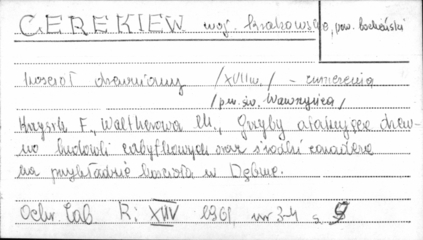 CEREKIEW woj. krakowskie, pow. bocheński
kościół drewniany /XVII w./ -
/pw. św. Wawrzyńca/
Krzysik F., Waltherowa M., Grzyby drew-
no budowli zabytkowych oraz środki zaradcze
na przykładzie kościoła w Dębnie.
Ochr. Zab. R: XIV 1961, nr 3-4 s 9